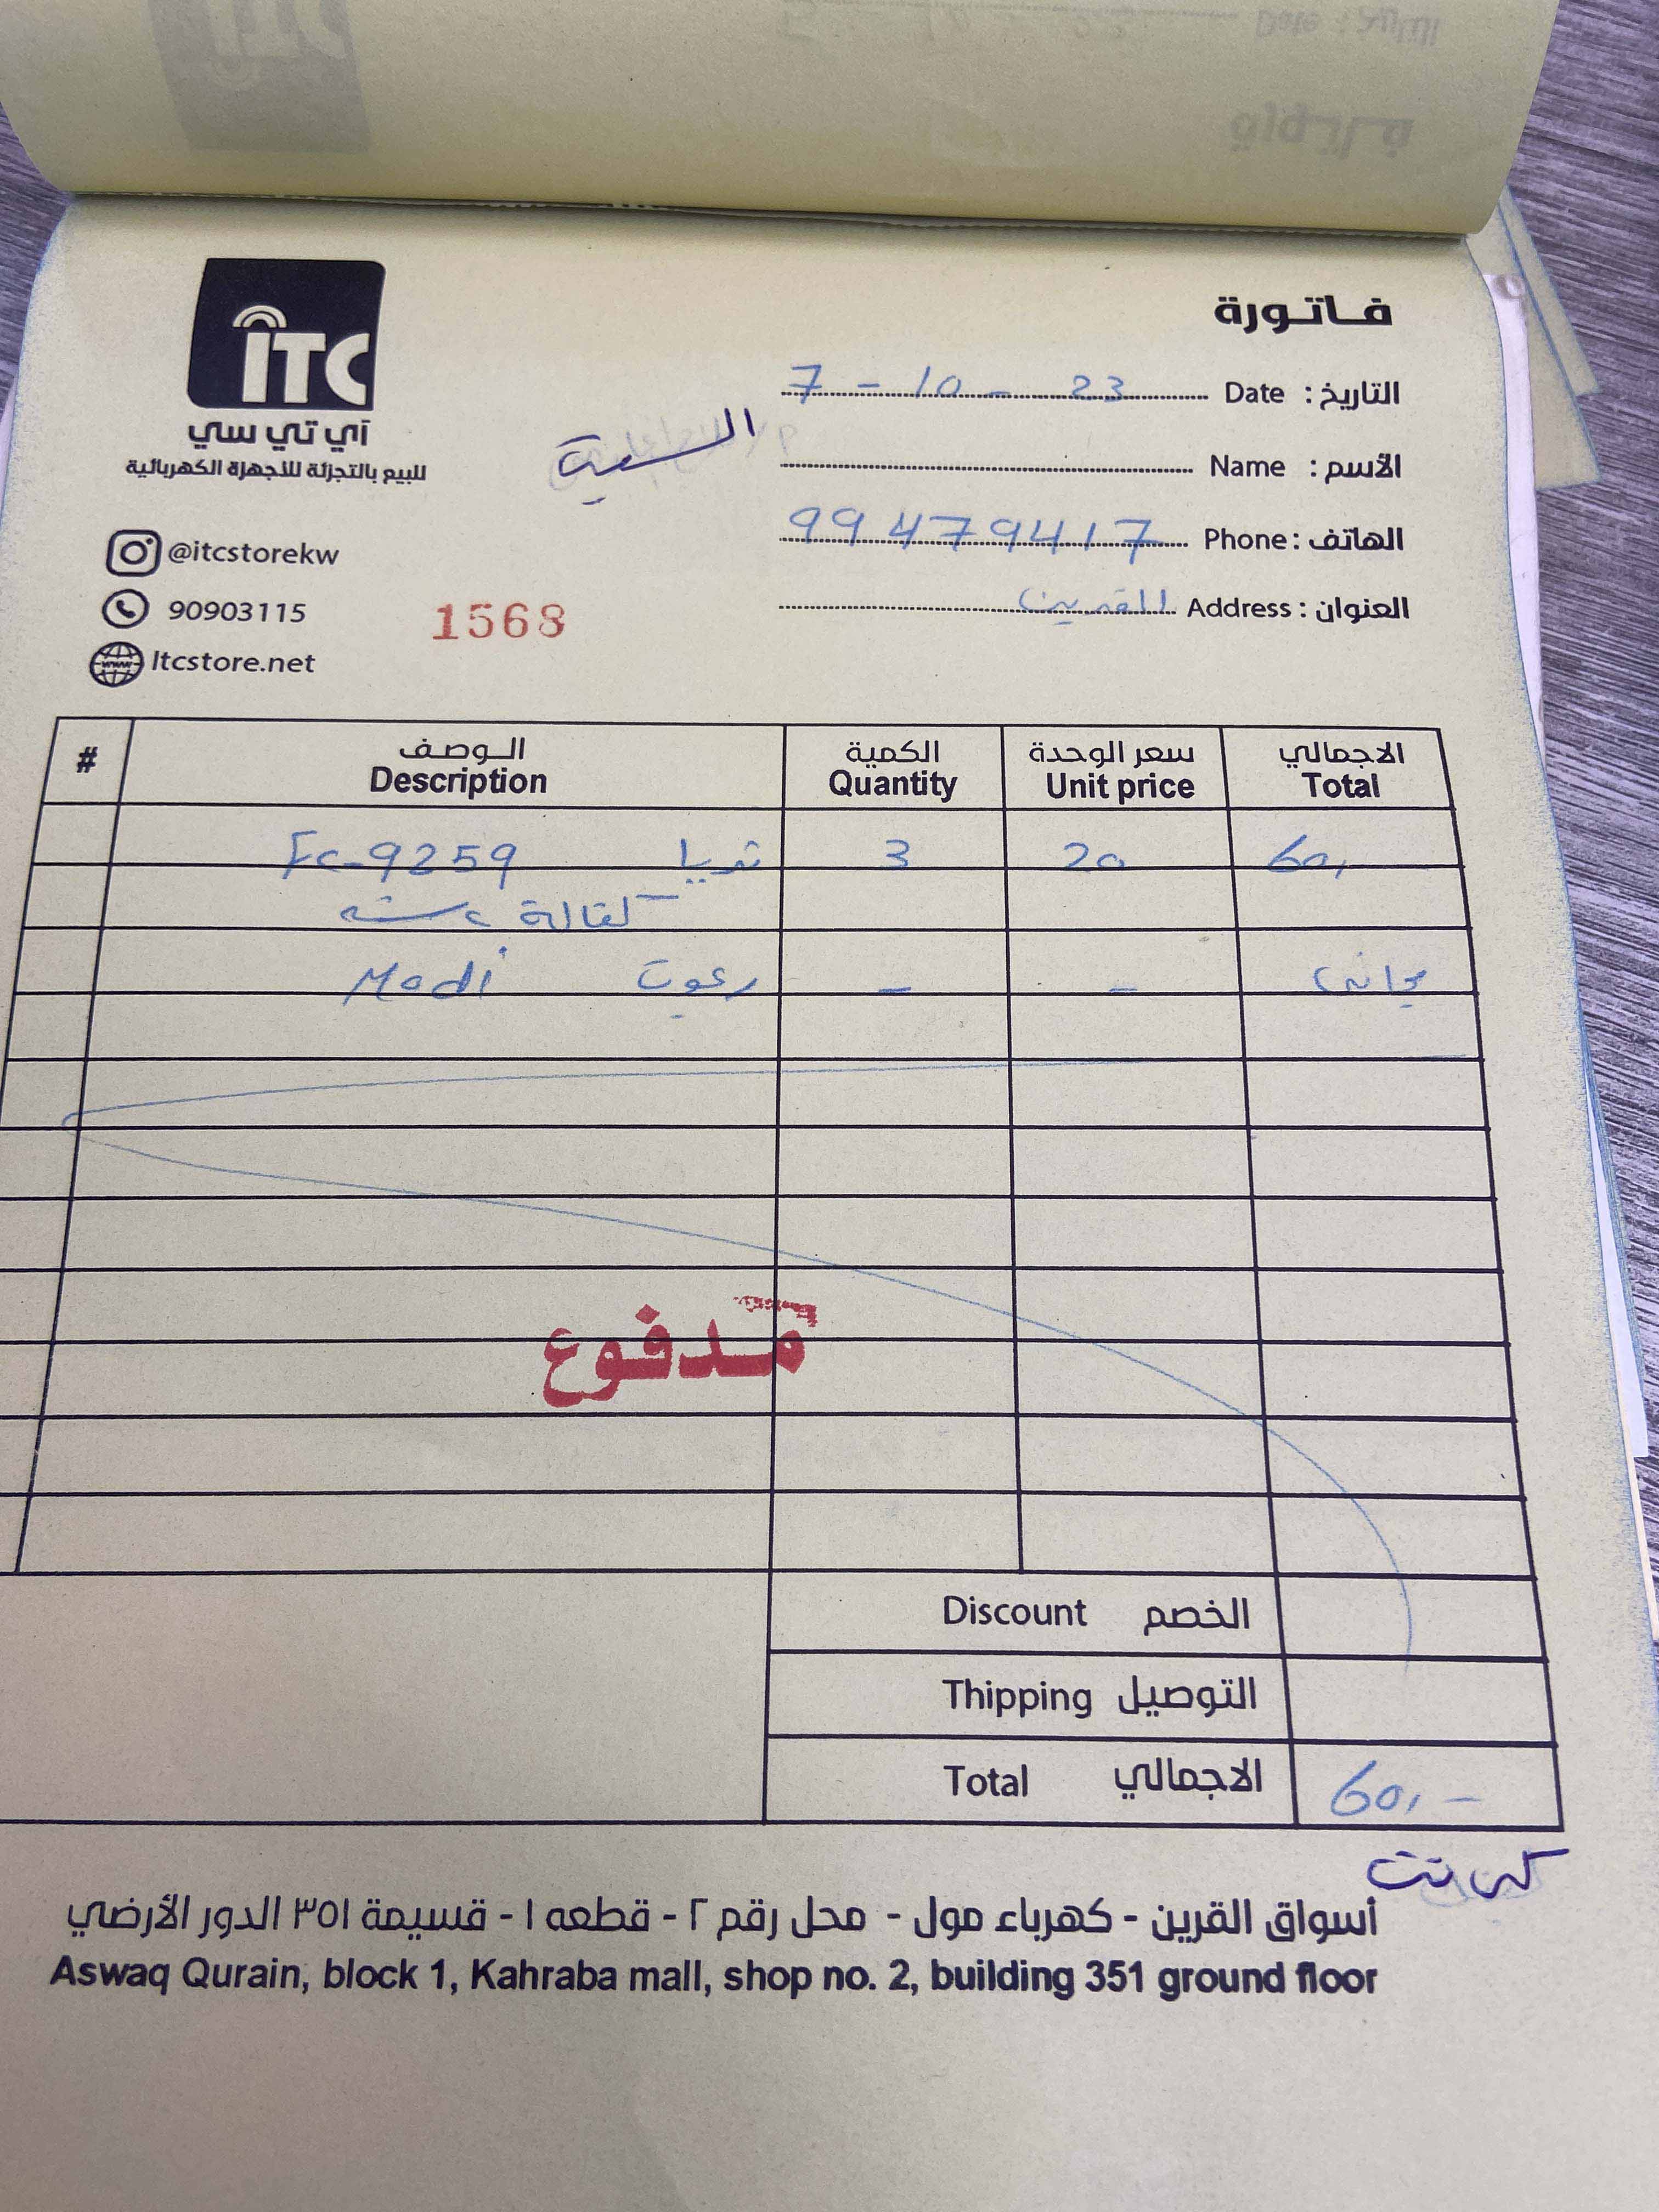 فاتورة
ITC
آي تي سي
للبيع بالتجزئة للأجهزة الكهربائية
@itcstorekw
90903115
Itcstore.net
1568
التاريخ : Date 7 - 10 - 23
الأسم : Name
الهاتف : Phone 99479417
العنوان : Address القرين
# الوصف الكمية سعر الوحدة الاجمالي
Description Quantity Unit price Total
ثريا Fc-9259 3 20 60,
كفالة سنه
ريموت Modi - - مجاني
مدفوع
Discount الخصم
Thipping التوصيل
Total الاجمالي 60,-
كي نت
أسواق القرين - كهرباء مول - محل رقم ٢ - قطعه ١ - قسيمة ٣٥١ الدور الأرضي
Aswaq Qurain, block 1, Kahraba mall, shop no. 2, building 351 ground floor